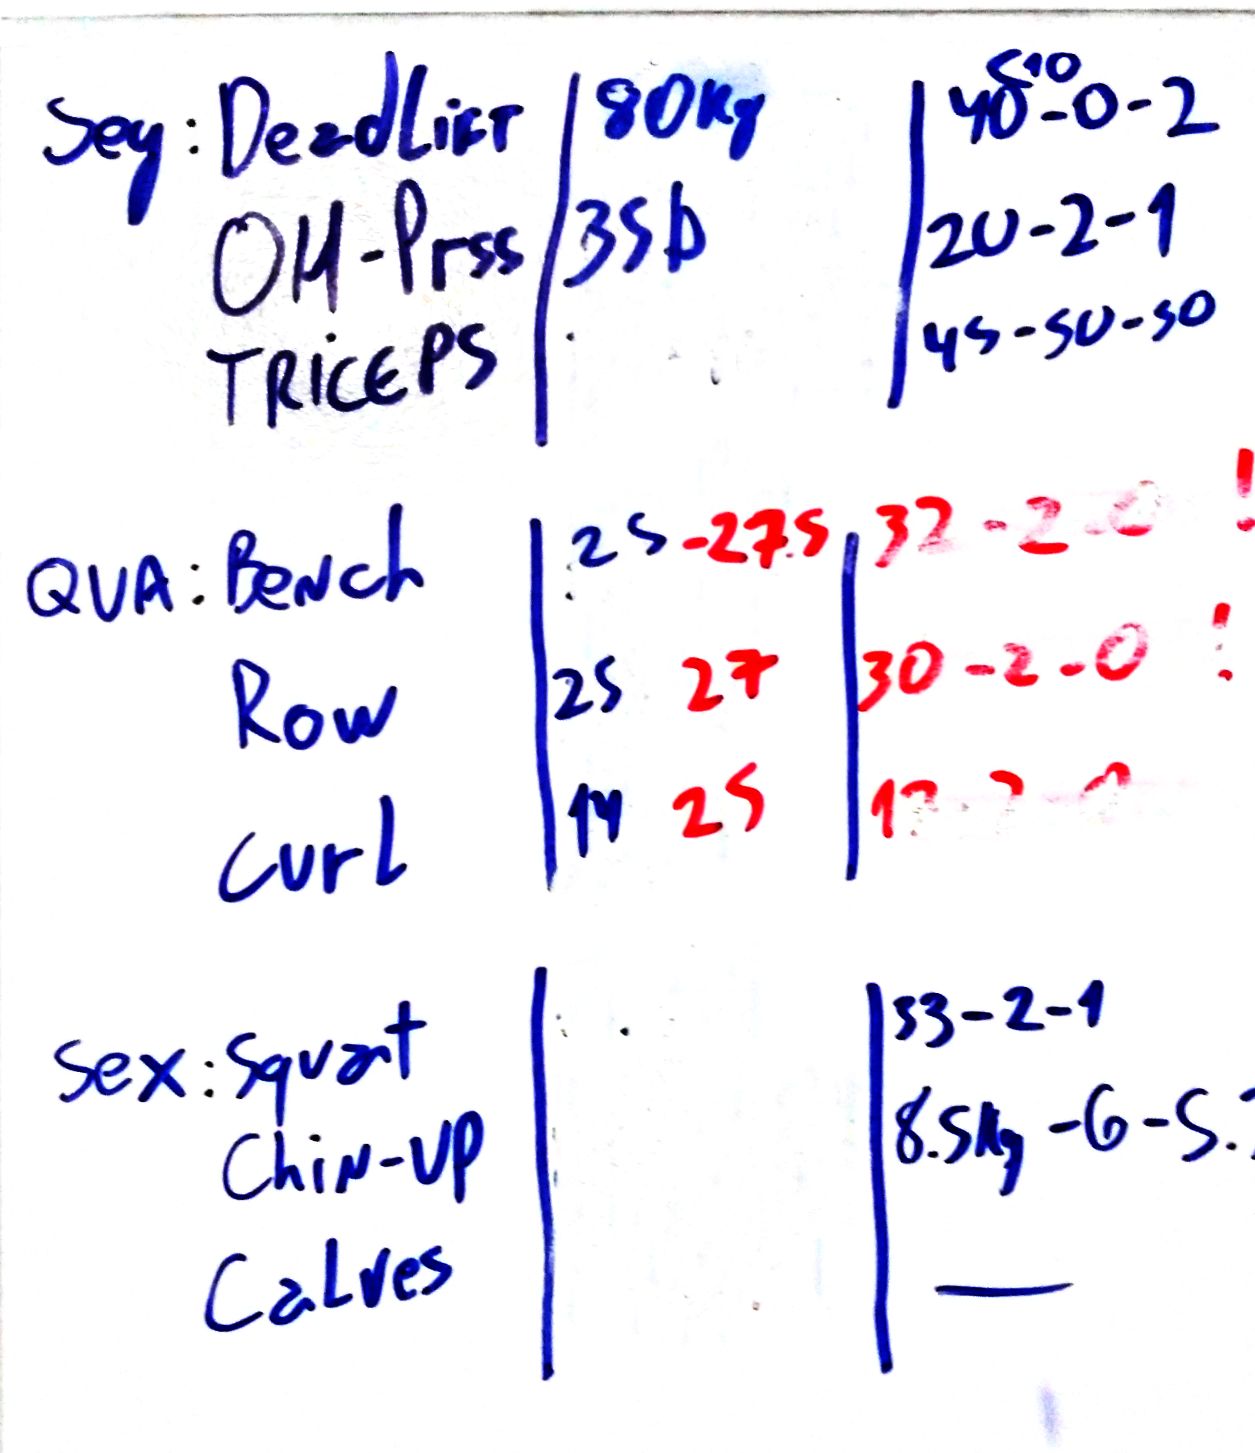 Seg: DeadLift 80Kg 40-0-2
<10
OH-Prss 35 20-2-1
TRiCEPS 45-50-50
QUA: Bench 25-27.5 32-2-0 !
Row 25 27 30-2-0 !
Curl 14 25
Sex: Squat 33-2-1
Chin-UP 8.5Kg-6-5.
Calves —